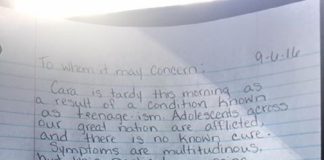 9-6-16
To whom it may concern:
Cara is tardy this morning as
a result of a condition known
as teenage-ism. Adolescents across
our great nation are afflicted,
and there is no known cure.
Symptoms are multitudinous,
but